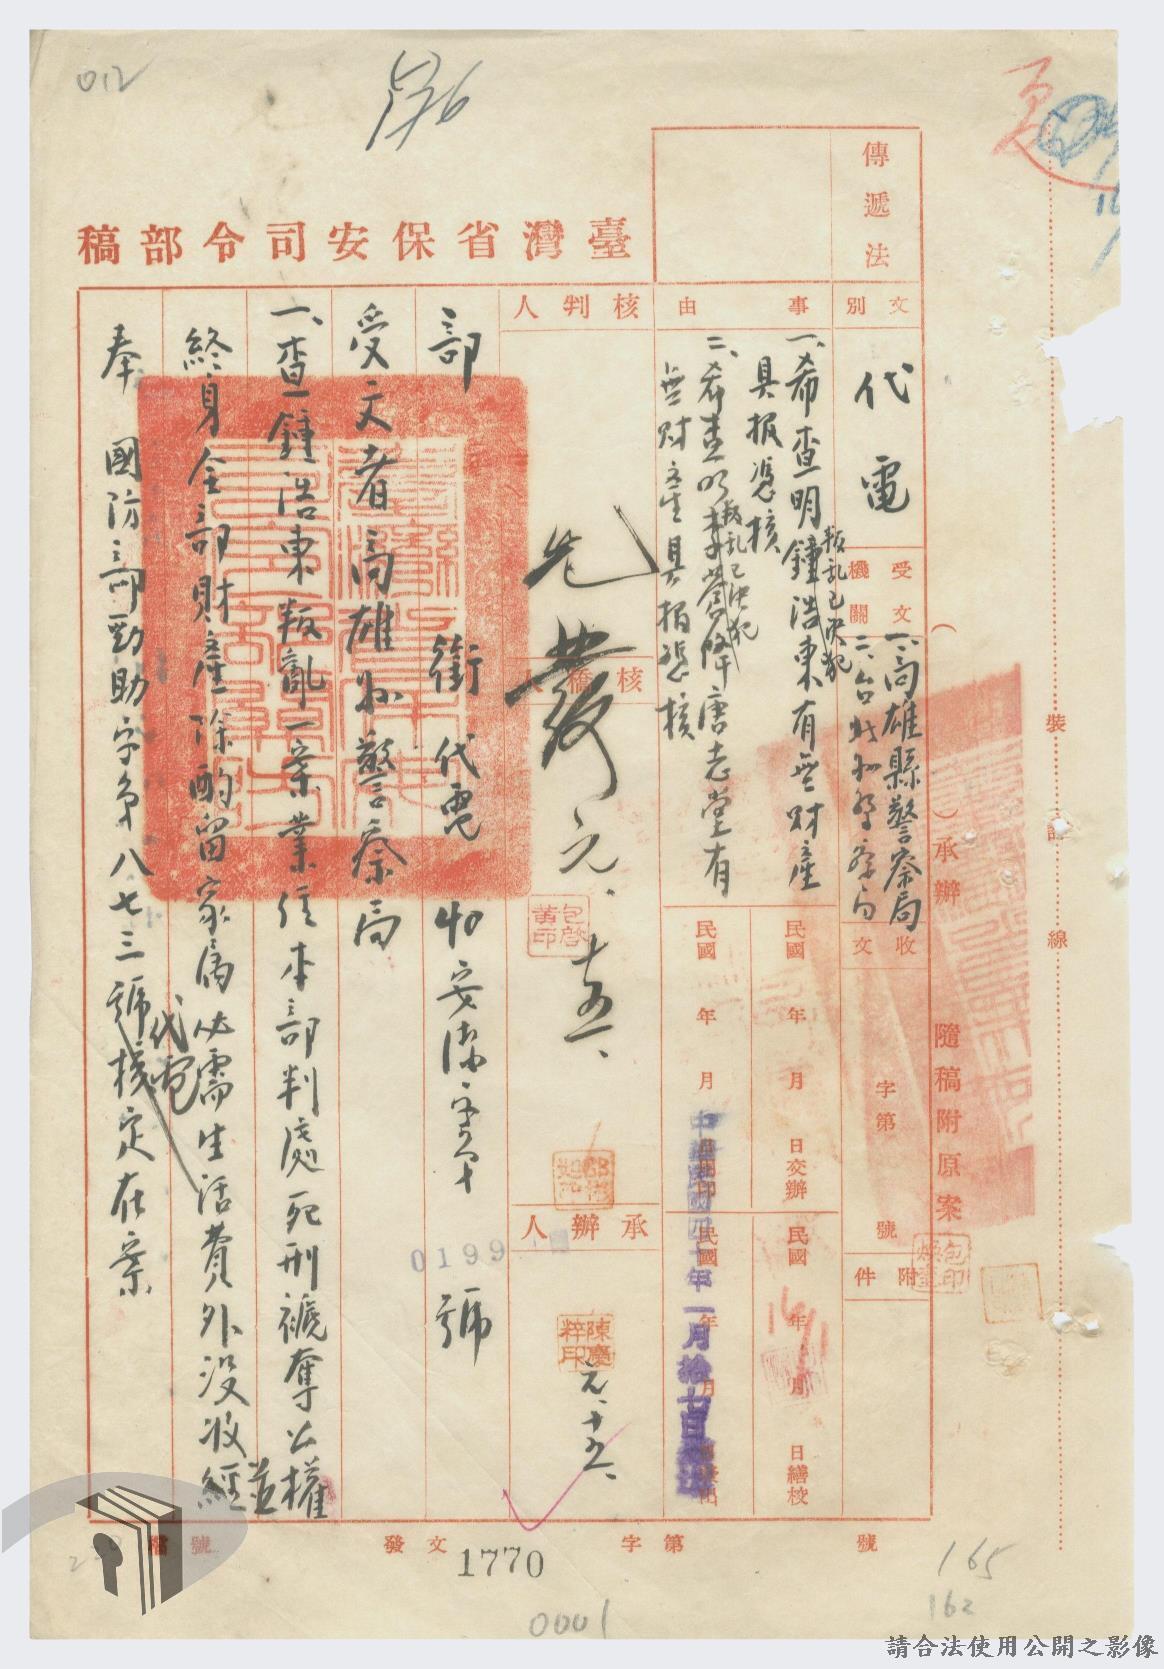 012
臺灣省保安司令部稿
傳遞法
文別
代電
受文機關
一、高雄縣警察局
二、台北縣警察局
收文
字第
號
附件
事由
一、希查明叛乱已決犯鍾浩東有無財產
具报憑核
二、希查明叛乱已決犯李蒼降唐志堂有
無財產具报憑核
民國 年 月 日交辦
民國 年 月 日繕校
民國 年 月
民國 年 月
中華民國四十年一月拾七日
核判人
核稿人
先發
元、十五、
承辦人
陳慶粹印
元、十五、
部銜代電
安潔字第
0199
號
受文者高雄县警察局
一、查鍾浩東叛亂一案業經本部判處死刑褫奪公權
終身全部財產除酌留家属必需生活費外没收並經
奉 國防部勁助字第八七三號代電核定在案
(
)承辦
隨稿附原案
裝
訂
線
檔號
發文
字第
號
1770
0001
165
162
請合法使用公開之影像